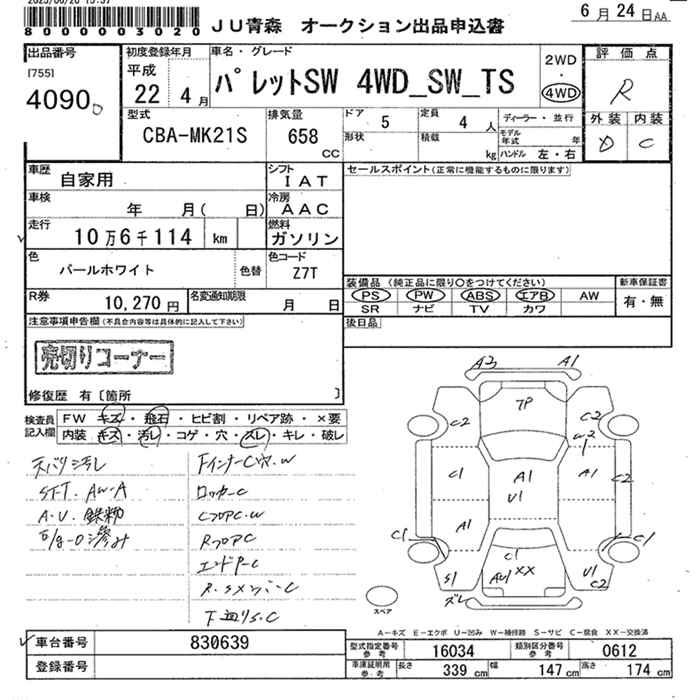 8 0 0 0 0 0 3 0 2 0
ＪＵ青森 オークション出品申込書
6月 24日 AA
出品番号
[755]
4090
初度登録年月
平成
22 4月
車名・グレード
パレットSW 4WD_SW_TS
2WD
・
4WD
評価点
R
外装 内装
D C
型式
CBA-MK21S
排気量
658 CC
ドア 5
定員 4 人
形状
積載 kg
ディーラー・並行
モデル年式 年
ハンドル 左・右
車歴
自家用
シフト
IAT
セールスポイント(正常に機能するものに限ります)
車検
年 月( 日)
冷房
AAC
走行
10万6千114 km
燃料
ガソリン
色
パールホワイト
色替
色コード
Z7T
装備品 (純正品に限り○をつけてください)
PS PW ABS エアB AW
SR ナビ TV カワ
新車保証書
有・無
R券 10,270 円
名変通知期限 月 日
後日品
注意事項申告欄(不具合内容等は具体的に記入して下さい)
売切りコーナー
修復歴 有〔箇所 〕
検査員記入欄
FW キズ・飛石・ヒビ割・リペア跡・×要
内装 キズ・汚レ・コゲ・穴・スレ・キレ・破レ
スペア
A－キズ E－エクボ U－凹み W－補修跡 S－サビ C－腐食 XX－交換済
車台番号 830639
登録番号
型式指定番号参考 16034
類別区分番号参考 0612
車庫証明用参考
長さ 339 cm 幅 147 cm 高さ 174 cm
A3 A1
TP
C2 C2
W2
C1 A1 U1 A1 C2
A1
C1 C1
C1
S1 AU1 XX U1 C2
ズレ